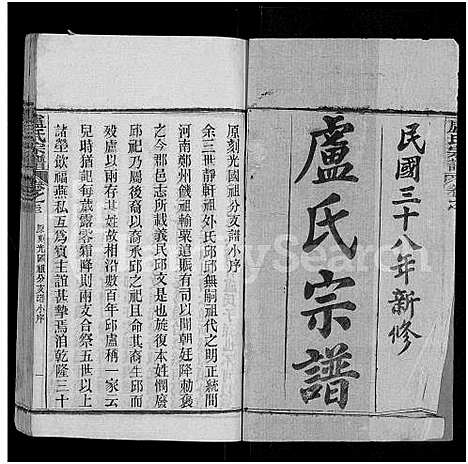 盧氏宗譜
民國三十八年新修
盧氏宗譜
原刻光國祖分支譜小序
余三世靜軒祖外氏邱邱無嗣祖代之明正統間
河南鄭州饑祖輸粟這賑有司以聞朝廷降勅褒
之今郡邑志所載義民邱文是也旋復本姓憫廢
邱祀乃令後裔兩文承邱之祀且命其裔生邱而
殁盧以兩存其姓故相沿數百年邱盧稱一家云
兒時猶記每歲露零霜降則兩文合祭五世以上
諸塋飲福燕私互爲賓主誼甚摯焉洎乾隆三十
盧氏宗譜
原刻光國祖分支譜小序
一
FamilySearch